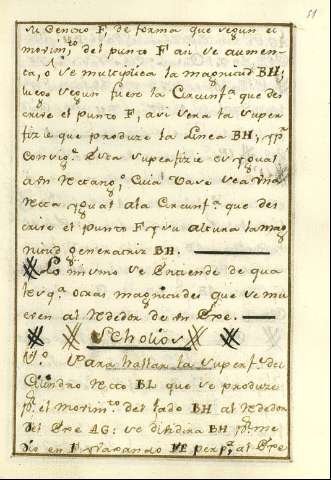 51
su centro F, de forma que segun el
movim.to del punto F asi se aumen-
ta, o se multiplica la magnitud BH;
luego segun fuere la Circunf.a que des
crive el punto F, asi sera la super
fizie que produze la Linea BH; y p.r
Consig.e Esta superfizie es ygual
a un Rectang.o, Cuia vase sea una
Recta ygual ala Circunf.a que des
crive el punto F, y su altura la mag
nitud generatriz BH.
Lo mismo se Entiende de qua
lesq.a otras magnitudes que se mu
even al Rededor de un Exe.
Scholios
1.o Para hallar la superf.e del
Cilindro Recto BL que se produze
p.r el movim.to del lado BH al Rededor
del Exe AG: se dividira BH p.r me
dio en F y tirando FE perp.r al Exe